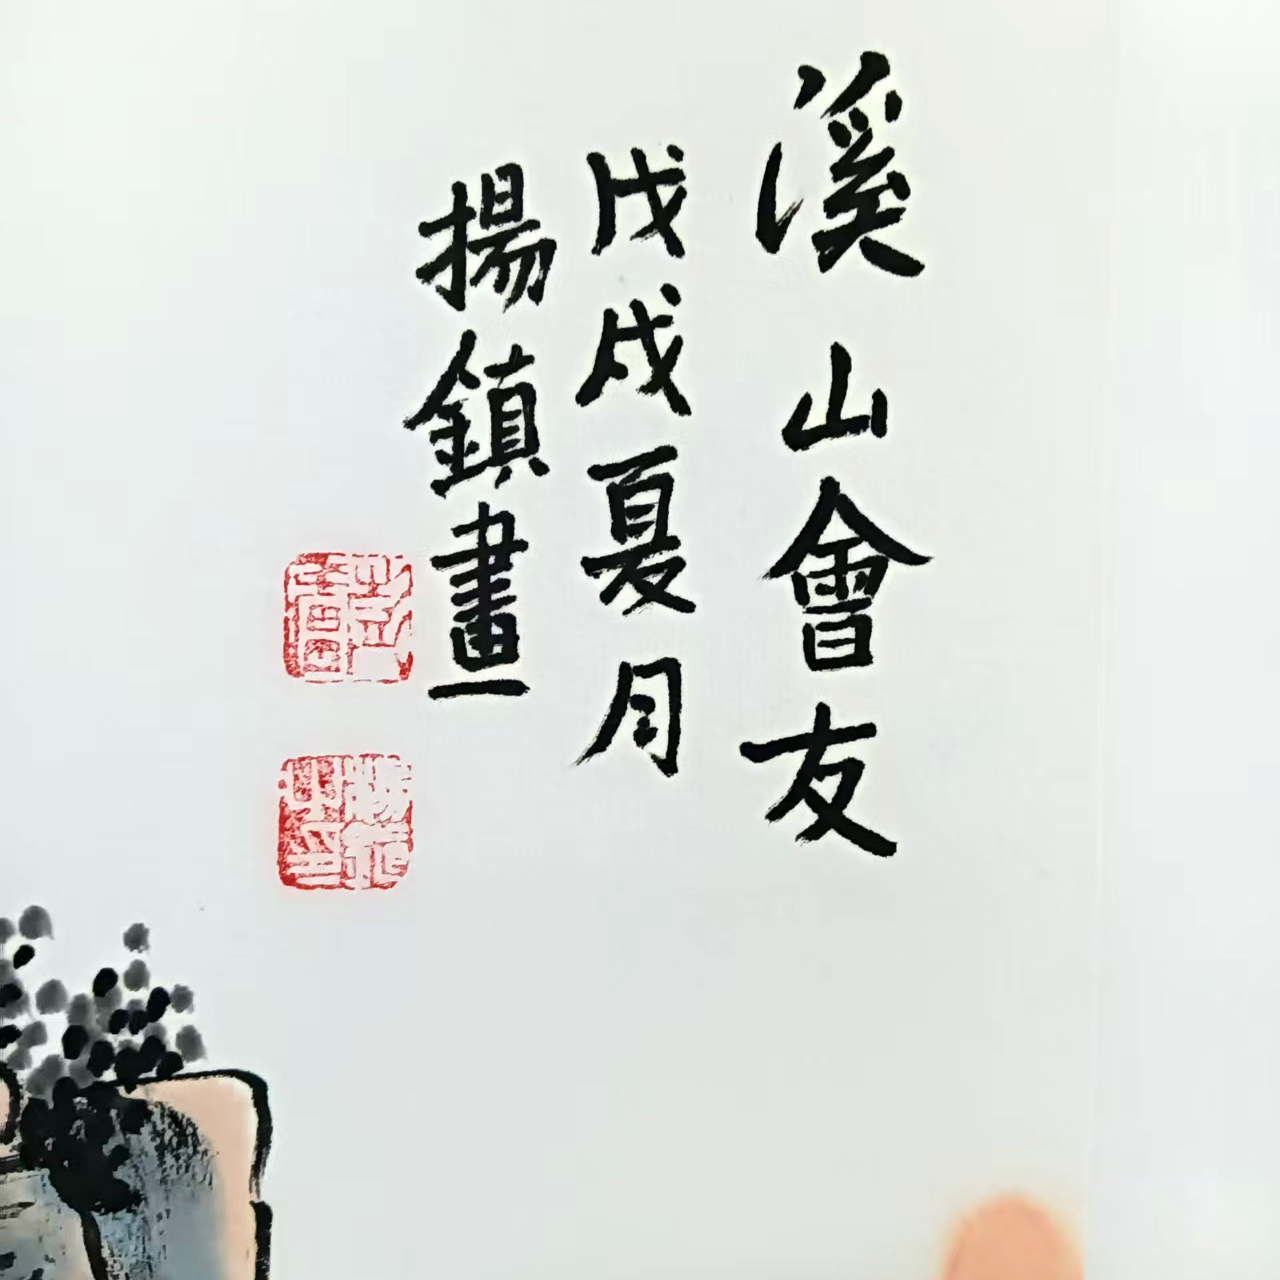 溪山會友
戊戌夏月
揚鎮畫